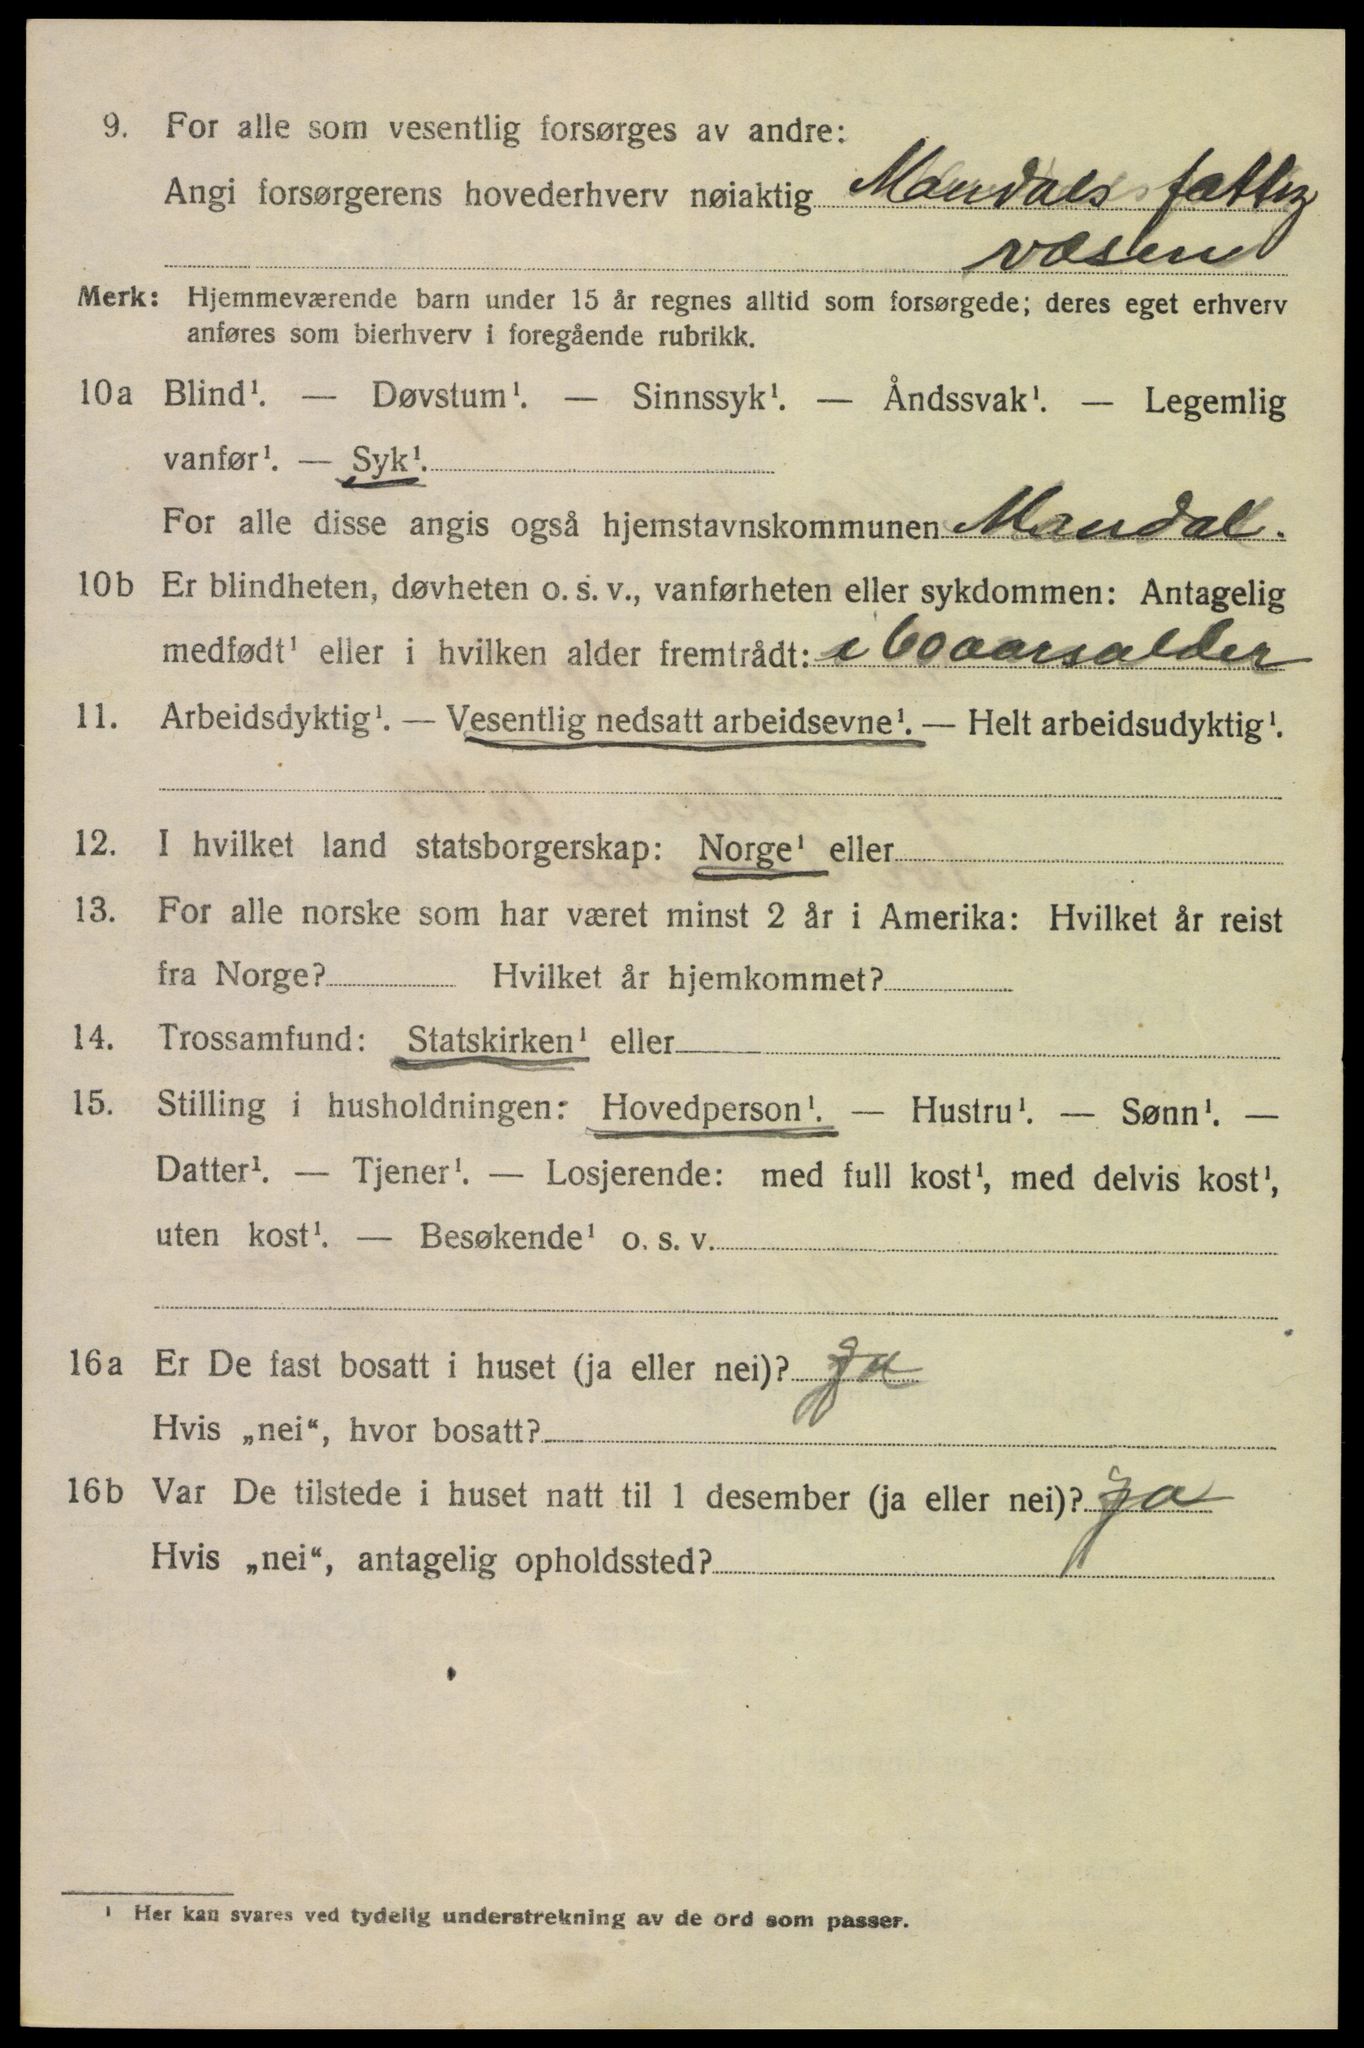 9. For alle som vesentlig forsørges av andre:
Angi forsørgerens hovederhverv nøiaktig Mandals fattig
væsen
Merk: Hjemmeværende barn under 15 år regnes alltid som forsørgede; deres eget erhverv
anføres som bierhverv i foregående rubrikk.
10a Blind¹. — Døvstum¹. — Sinnssyk¹. — Åndssvak¹. — Legemlig
vanfør¹. — Syk¹.
For alle disse angis også hjemstavnskommunen Mandal.
10b Er blindheten, døvheten o. s. v., vanførheten eller sykdommen: Antagelig
medfødt¹ eller i hvilken alder fremtrådt: i 60 aarsalder
11. Arbeidsdyktig¹. — Vesentlig nedsatt arbeidsevne¹. — Helt arbeidsudyktig¹.
12. I hvilket land statsborgerskap: Norge¹ eller
13. For alle norske som har været minst 2 år i Amerika: Hvilket år reist
fra Norge? Hvilket år hjemkommet?
14. Trossamfund: Statskirken¹ eller
15. Stilling i husholdningen: Hovedperson¹. — Hustru¹. — Sønn¹. —
Datter¹. — Tjener¹. — Losjerende: med full kost¹, med delvis kost¹,
uten kost¹. — Besøkende¹ o. s. v.
16a Er De fast bosatt i huset (ja eller nei)? Ja
Hvis „nei“, hvor bosatt?
16b Var De tilstede i huset natt til 1 desember (ja eller nei)? Ja
Hvis „nei“, antagelig opholdssted?
¹ Her kan svares ved tydelig understrekning av de ord som passer.